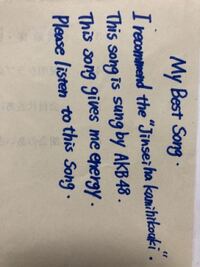 My Best Song.
I recommend the "Jinsei ha kamihikouki".
This song is sung by AKB48.
This song gives me energy.
Please listen to this song.